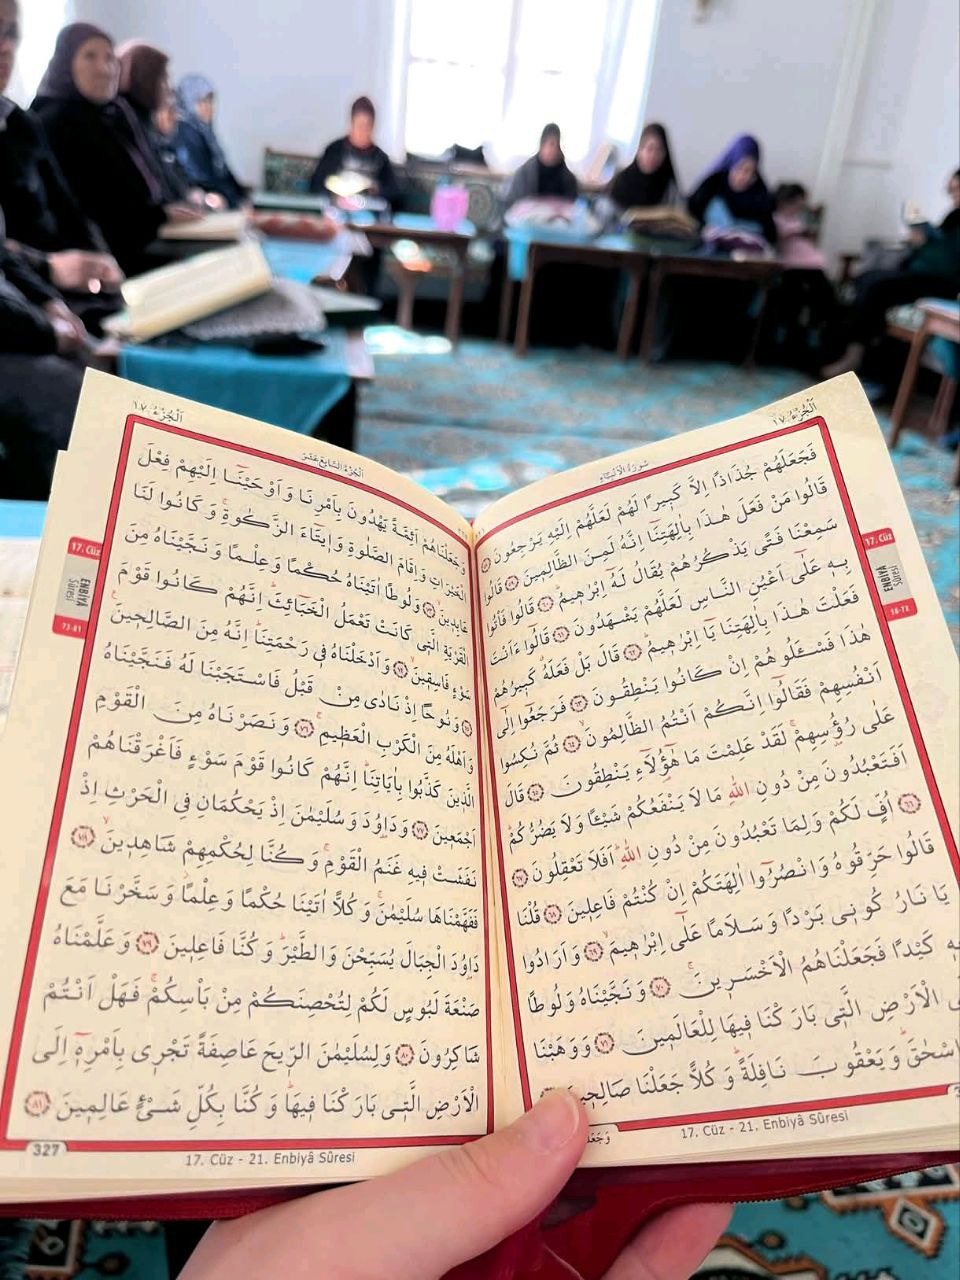 اَلْجُزْءُ ١٧
سُورَةُ الْاَنْبِيَاءِ
فَجَعَلَهُمْ جُذَاذًا اِلَّا كَبِيرًا لَهُمْ لَعَلَّهُمْ اِلَيْهِ يَرْجِعُونَ ﴿٥٨﴾
قَالُوا مَنْ فَعَلَ هٰذَا بِاٰلِهَتِنَٓا اِنَّهُ لَمِنَ الظَّالِمِينَ ﴿٥٩﴾ قَالُوا
سَمِعْنَا فَتًى يَذْكُرُهُمْ يُقَالُ لَهُٓ اِبْرٰهِيمُ ﴿٦٠﴾ قَالُوا فَأْتُوا
بِهِ عَلٰٓى اَعْيُنِ النَّاسِ لَعَلَّهُمْ يَشْهَدُونَ ﴿٦١﴾ قَالُٓوا ءَاَنْتَ
فَعَلْتَ هٰذَا بِاٰلِهَتِنَا يَٓا اِبْرٰهِيمُ ﴿٦٢﴾ قَالَ بَلْ فَعَلَهُ كَبِيرُهُمْ
هٰذَا فَسْـَٔلُوهُمْ اِنْ كَانُوا يَنْطِقُونَ ﴿٦٣﴾ فَرَجَعُٓوا اِلٰٓى
اَنْفُسِهِمْ فَقَالُٓوا اِنَّكُمْ اَنْتُمُ الظَّالِمُونَ ﴿٦٤﴾ ثُمَّ نُكِسُوا
عَلٰى رُؤُ۫سِهِمْ لَقَدْ عَلِمْتَ مَا هٰٓؤُ۬لَٓاءِ يَنْطِقُونَ ﴿٦٥﴾ قَالَ
اَفَتَعْبُدُونَ مِنْ دُونِ اللّٰهِ مَا لَا يَنْفَعُكُمْ شَيْـًٔا وَلَا يَضُرُّكُمْ
﴿٦٦﴾ اُفٍّ لَكُمْ وَلِمَا تَعْبُدُونَ مِنْ دُونِ اللّٰهِ اَفَلَا تَعْقِلُونَ ﴿٦٧﴾
قَالُوا حَرِّقُوهُ وَانْصُرُٓوا اٰلِهَتَكُمْ اِنْ كُنْتُمْ فَاعِلِينَ ﴿٦٨﴾ قُلْنَا
يَا نَارُ كُونِي بَرْدًا وَسَلَامًا عَلٰٓى اِبْرٰهِيمَ ﴿٦٩﴾ وَاَرَادُوا
كَيْدًا فَجَعَلْنَاهُمُ الْاَخْسَرِينَ ﴿٧٠﴾ وَنَجَّيْنَاهُ وَلُوطًا
الْاَرْضِ الَّتِي بَارَكْنَا فِيهَا لِلْعَالَمِينَ ﴿٧١﴾ وَوَهَبْنَا
اِسْحٰقَ وَيَعْقُوبَ نَافِلَةً وَكُلًّا جَعَلْنَا صَالِحِينَ
17. Cüz - 21. Enbiyâ Sûresi
17. Cüz
ENBİYÂ
Sûresi
58-72
اَلْجُزْءُ ١٧
اَلْجُزْءُ السَّابِعَ عَشَرَ
وَجَعَلْنَاهُمْ اَئِمَّةً يَهْدُونَ بِاَمْرِنَا وَاَوْحَيْنَٓا اِلَيْهِمْ فِعْلَ
الْخَيْرَاتِ وَاِقَامَ الصَّلٰوةِ وَاِيتَٓاءَ الزَّكٰوةِ وَكَانُوا لَنَا
عَابِدِينَ ﴿٧٣﴾ وَلُوطًا اٰتَيْنَاهُ حُكْمًا وَعِلْمًا وَنَجَّيْنَاهُ مِنَ
الْقَرْيَةِ الَّتِي كَانَتْ تَعْمَلُ الْخَبَٓائِثَ اِنَّهُمْ كَانُوا قَوْمَ
سَوْءٍ فَاسِقِينَ ﴿٧٤﴾ وَاَدْخَلْنَاهُ فِي رَحْمَتِنَا اِنَّهُ مِنَ الصَّالِحِينَ
﴿٧٥﴾ وَنُوحًا اِذْ نَادٰى مِنْ قَبْلُ فَاسْتَجَبْنَا لَهُ فَنَجَّيْنَاهُ
وَاَهْلَهُ مِنَ الْكَرْبِ الْعَظِيمِ ﴿٧٦﴾ وَنَصَرْنَاهُ مِنَ الْقَوْمِ
الَّذِينَ كَذَّبُوا بِاٰيَاتِنَا اِنَّهُمْ كَانُوا قَوْمَ سَوْءٍ فَاَغْرَقْنَاهُمْ
اَجْمَعِينَ ﴿٧٧﴾ وَدَاوُ۫دَ وَسُلَيْمٰنَ اِذْ يَحْكُمَانِ فِي الْحَرْثِ اِذْ
نَفَشَتْ فِيهِ غَنَمُ الْقَوْمِ وَكُنَّا لِحُكْمِهِمْ شَاهِدِينَ ﴿٧٨﴾
فَفَهَّمْنَاهَا سُلَيْمٰنَ وَكُلًّا اٰتَيْنَا حُكْمًا وَعِلْمًا وَسَخَّرْنَا مَعَ
دَاوُ۫دَ الْجِبَالَ يُسَبِّحْنَ وَالطَّيْرَ وَكُنَّا فَاعِلِينَ ﴿٧٩﴾ وَعَلَّمْنَاهُ
صَنْعَةَ لَبُوسٍ لَكُمْ لِتُحْصِنَكُمْ مِنْ بَأْسِكُمْ فَهَلْ اَنْتُمْ
شَاكِرُونَ ﴿٨٠﴾ وَلِسُلَيْمٰنَ الرِّيحَ عَاصِفَةً تَجْرِي بِاَمْرِهِٓ اِلَى
الْاَرْضِ الَّتِي بَارَكْنَا فِيهَا وَكُنَّا بِكُلِّ شَيْءٍ عَالِمِينَ ﴿٨١﴾
327
17. Cüz - 21. Enbiyâ Sûresi
17. Cüz
ENBİYÂ
Sûresi
73-81